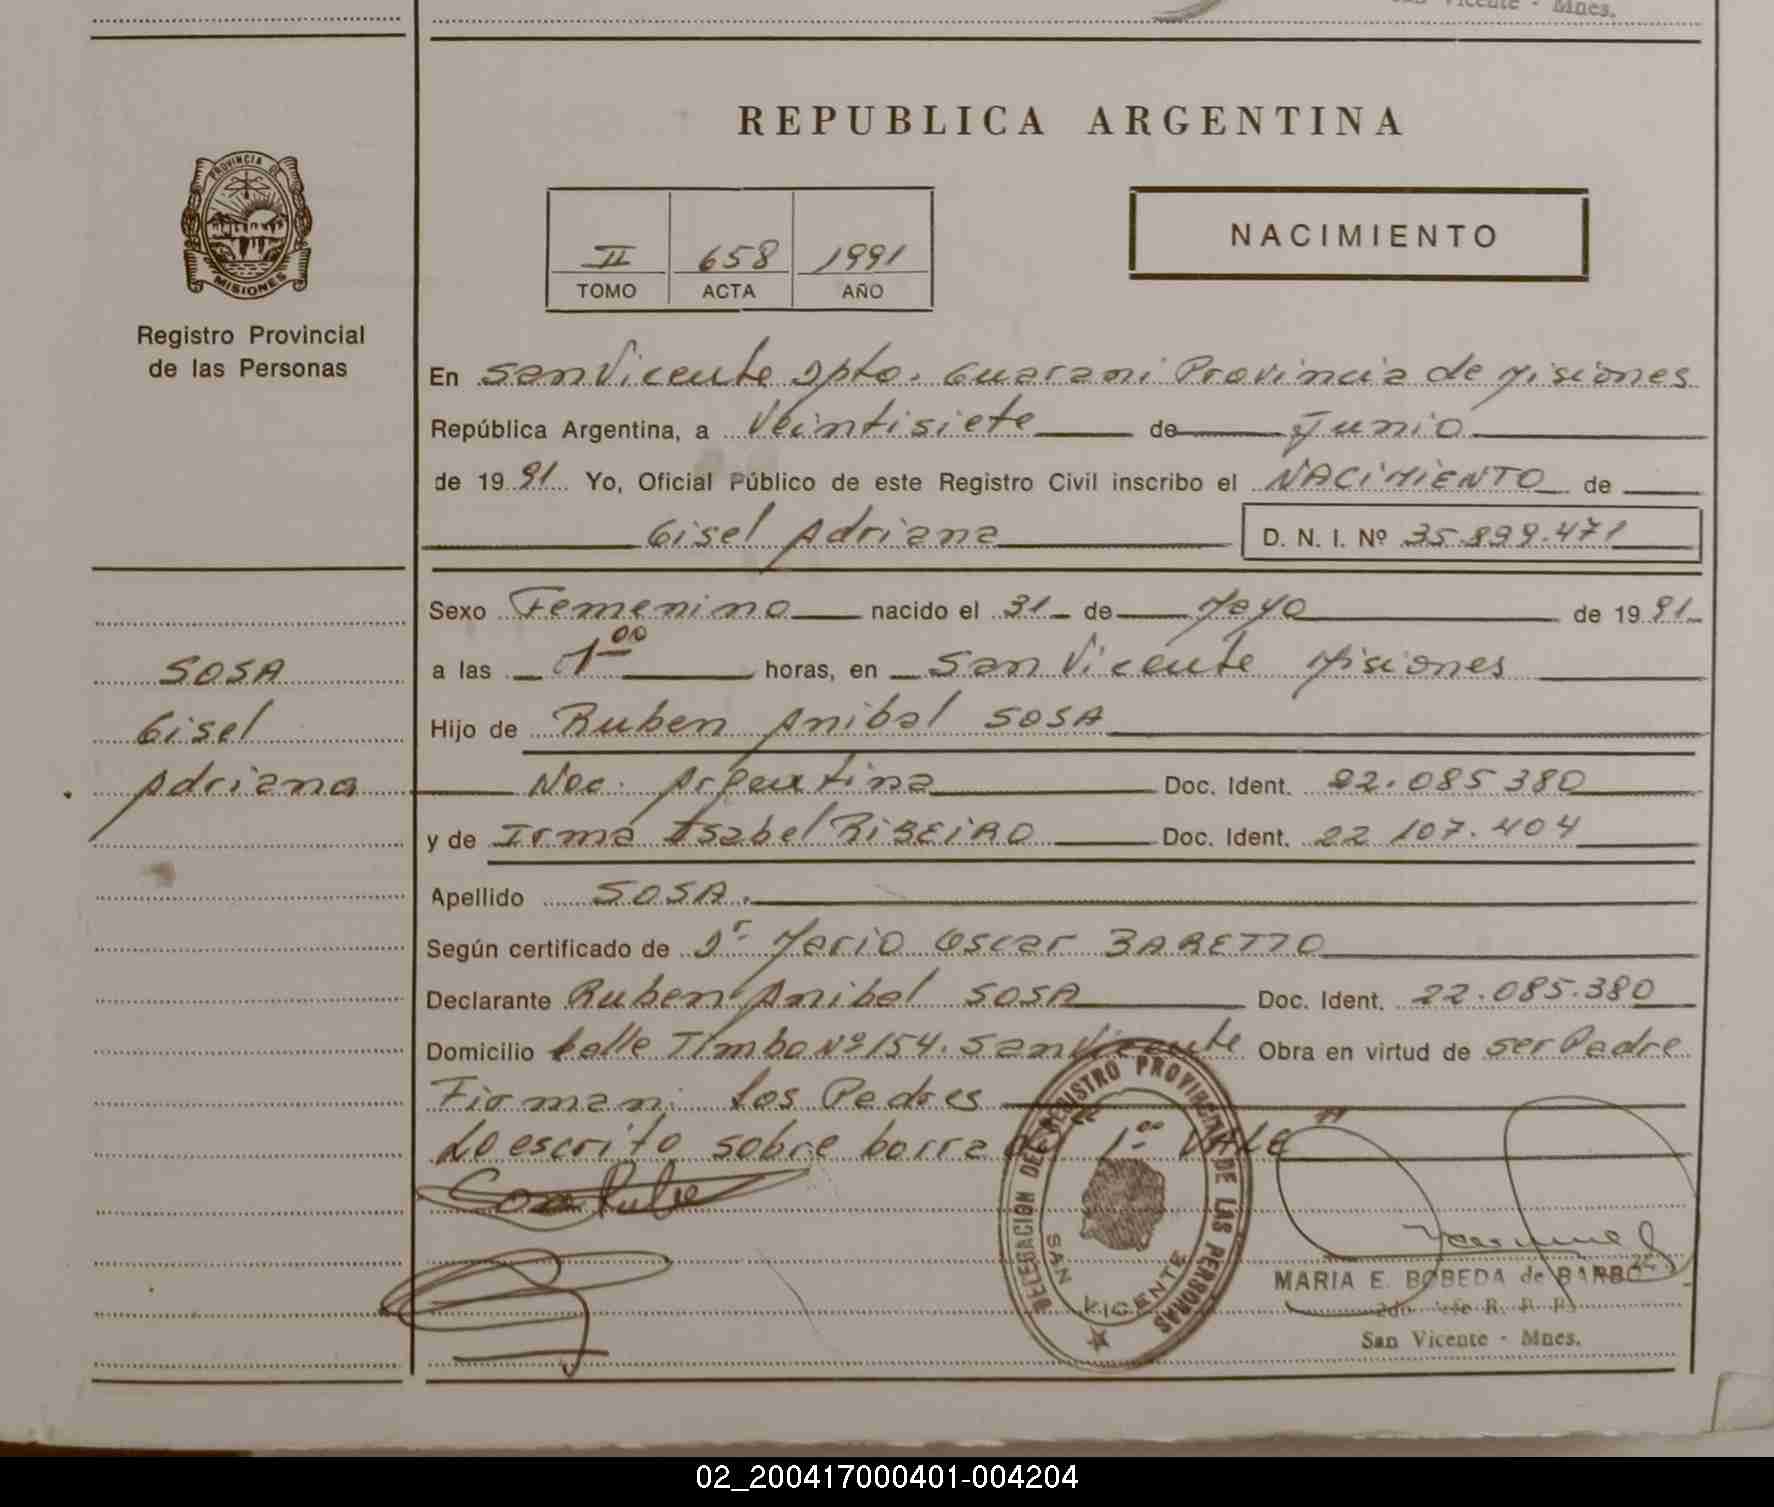 San Vicente - Mnes.
REPUBLICA ARGENTINA
PROVINCIA DE
MISIONES
Registro Provincial
de las Personas
II 658 1991
TOMO ACTA AÑO
NACIMIENTO
En San Vicente Dpto. Guarani Provincia de Misiones
República Argentina, a Veintisiete de Junio
de 1991 Yo, Oficial Público de este Registro Civil inscribo el NACIMIENTO de
Gisel Adriana D. N. I. Nº 35.899.471
Sexo Femenino nacido el 31 de Mayo de 1991
SOSA
Gisel
Adriana
a las 1 00 horas, en San Vicente Misiones
Hijo de Ruben Anibal SOSA
Nac. Argentina Doc. Ident. 22.085 380
y de Irma Isabel RIBEIRO Doc. Ident. 22 107.404
Apellido SOSA.
Según certificado de Dr Mario Oscar BARETTO
Declarante Ruben Anibal SOSA Doc. Ident. 22.085.380
Domicilio Calle Timbo Nº 154. San Vicente Obra en virtud de ser Padre
Firman: los Padres
Lo escrito sobre borrado "1 00 VALE"
DELEGACION DEL REGISTRO PROVINCIAL DE LAS PERSONAS
SAN VICENTE
MARIA E. BOBEDA de BARBO
2do Jefe R. P. P.
San Vicente - Mnes.
02_200417000401-004204